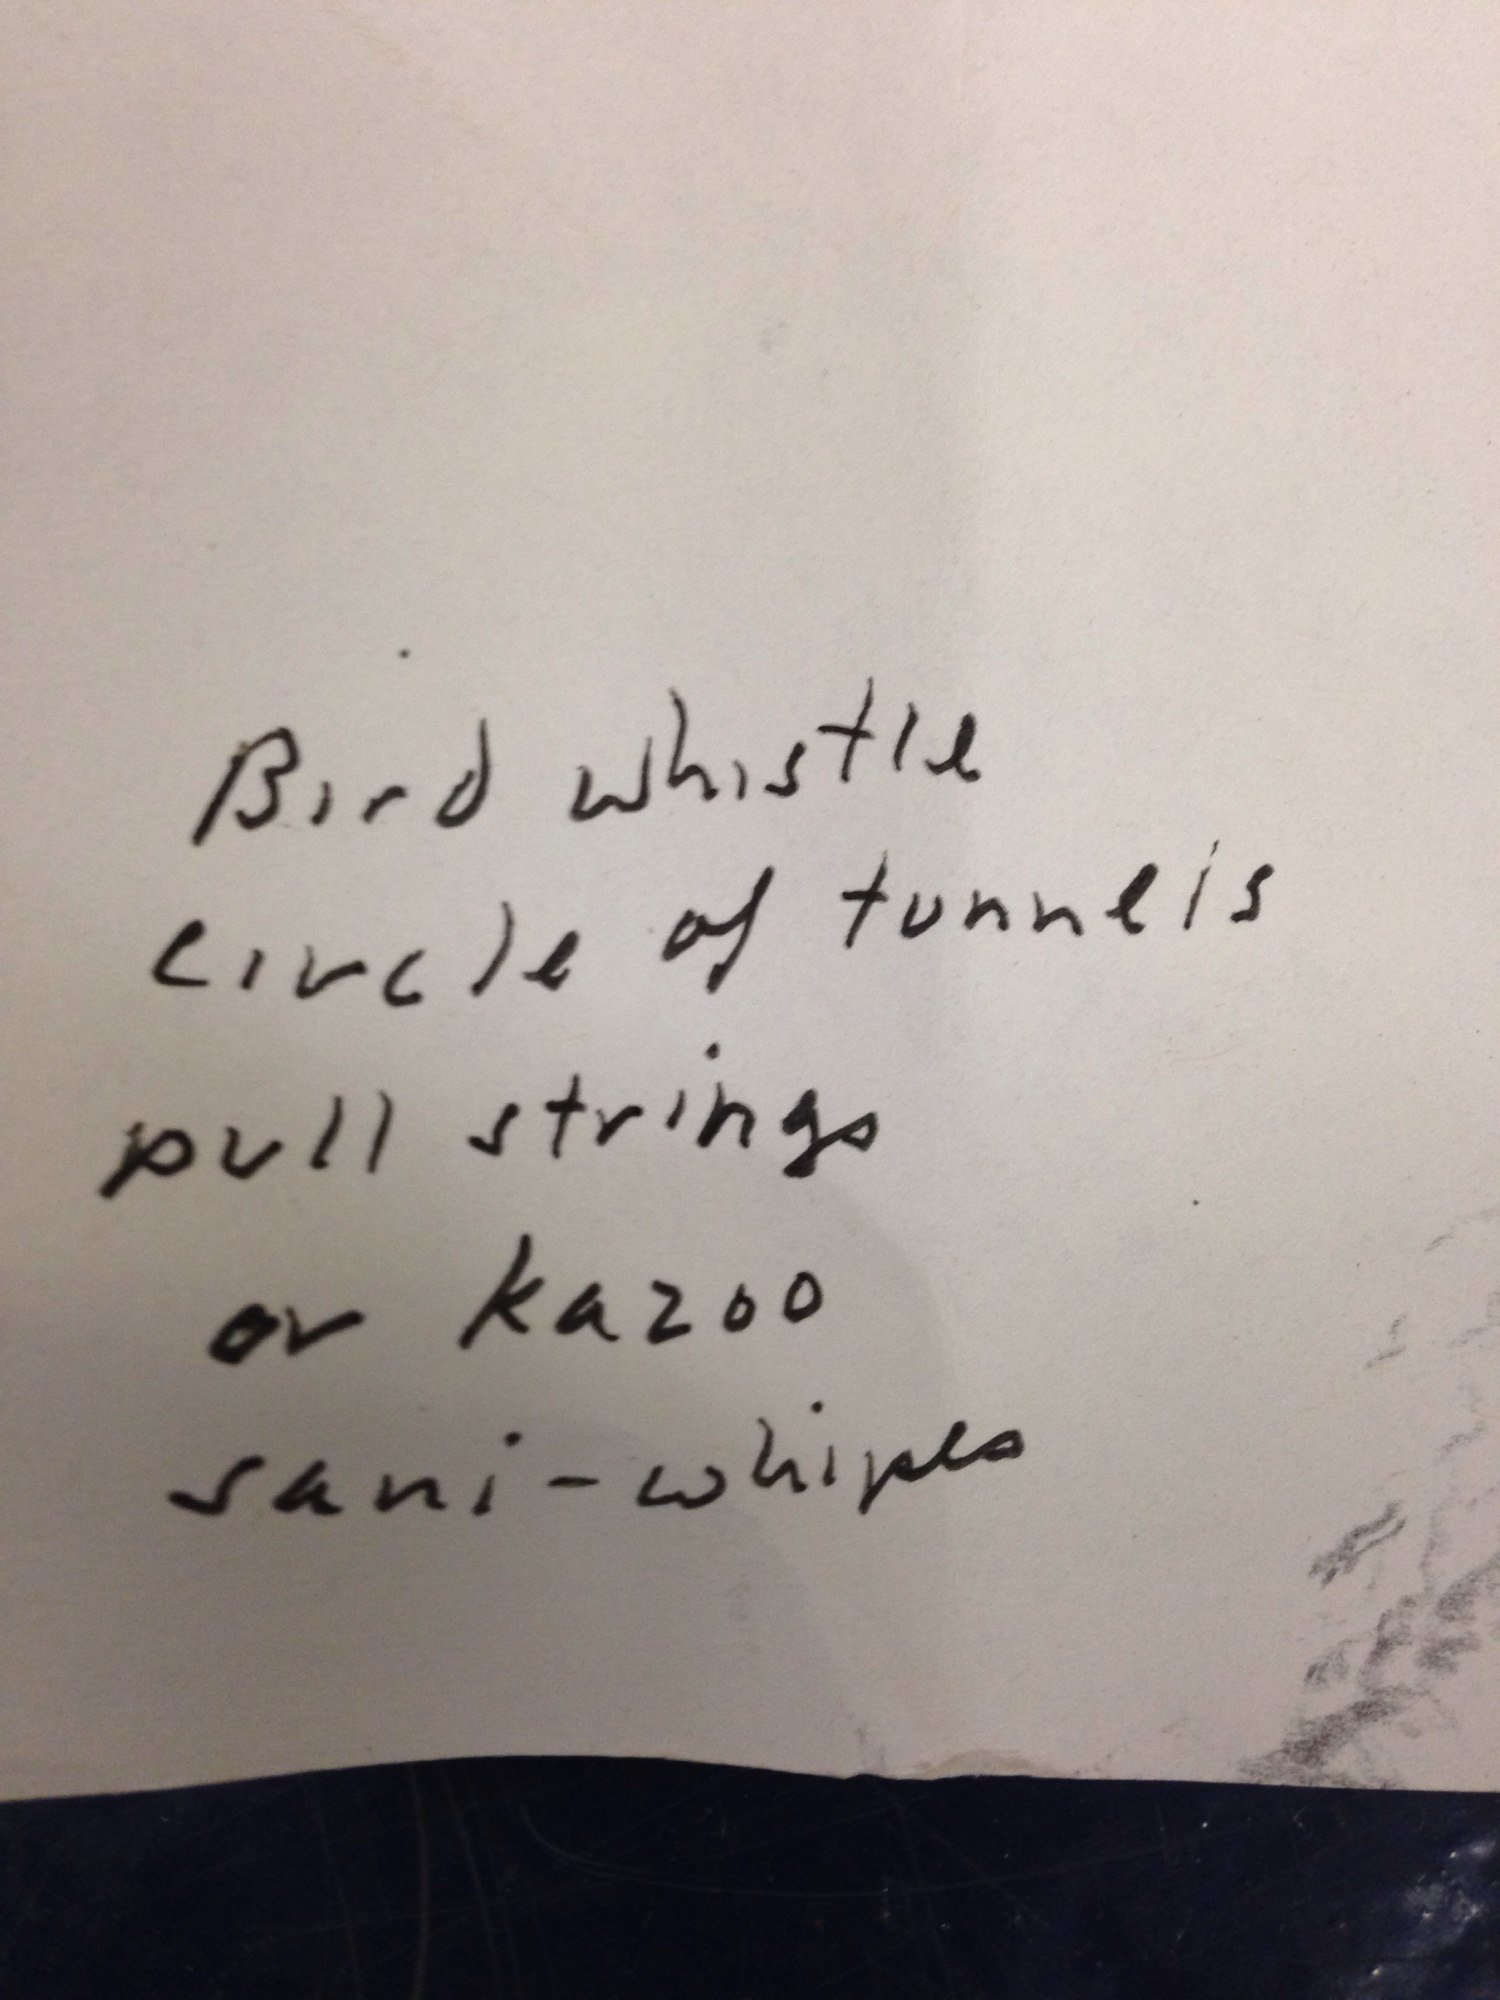 Bird whistle
circle of tunnels
pull strings
or kazoo
sani-whipes